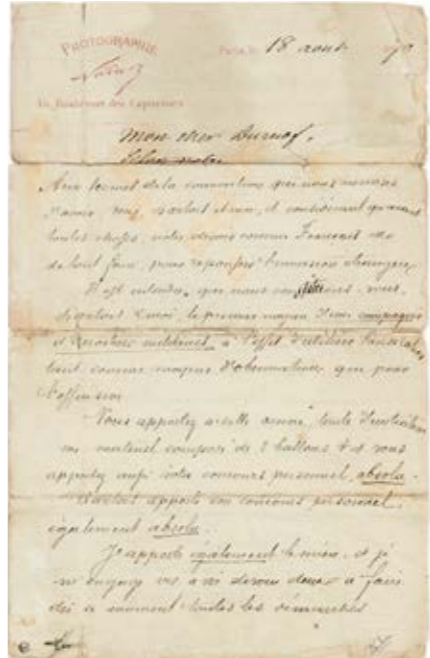 PHOTOGRAPHIE
Nadar
Paris, le 18 août 1870
35, Boulevard des Capucines
Mon cher Duruof,
Selon notre
Aux termes de la convention que nous
Dartois et moi, et considérant qu'avant
toutes choses, notre devoir comme Français est
de tout faire, pour repousser l'invasion étrangère
Il est entendu, que nous constituons, vous,
Dartois & moi, le premier noyau d'une compagnie
d'aérostiers militaires, à l'effet d'utiliser
tant comme moyen d'observation, que pour
l'offensive
Vous apportez à cette œuvre, toute
un matériel composé de ballons & et vous
apportez aussi votre concours personnel absolu.
Dartois apporte son concours personnel
également absolu.
J'apporte également le mien, et je
m'engage vis à vis de vous deux à faire
dès ce moment toutes les démarches